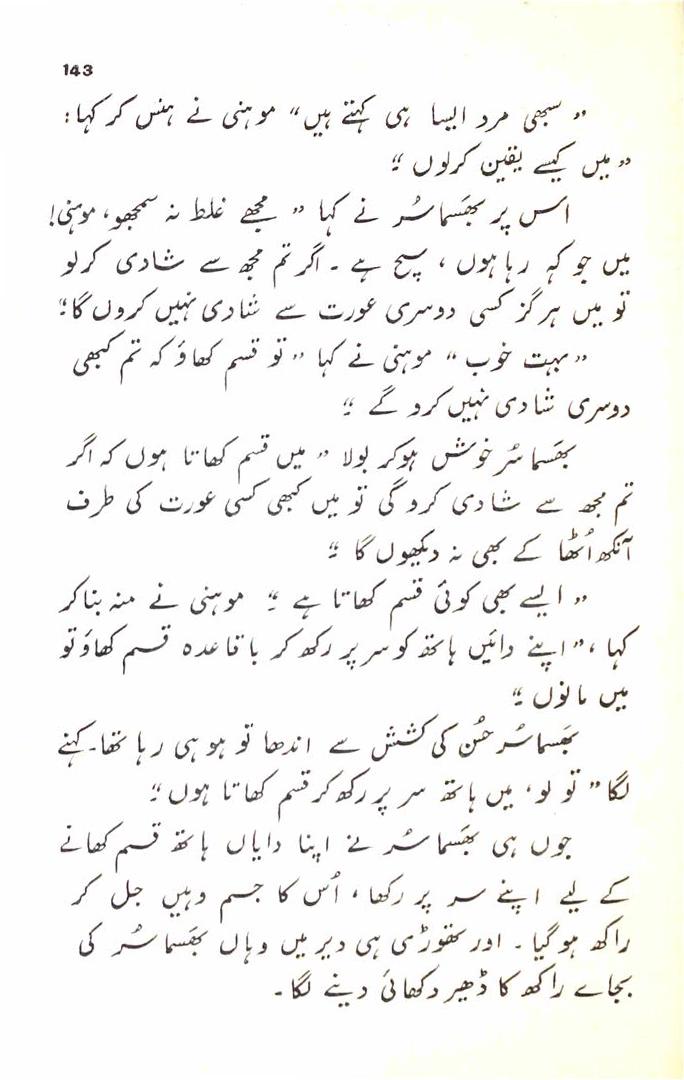 143
” سبھی مرد ایسا ہی کہتے ہیں“ موہنی نے ہنس کر کہا:
” میں کیسے یقین کرلوں ۔“
اس پر بھَسماسُر نے کہا ” مجھے غلط نہ سمجھو، موہنی!
میں جو کہہ رہا ہوں ، سچ ہے ۔ اگر تم مجھ سے شادی کرلو
تو میں ہرگز کسی دوسری عورت سے شادی نہیں کروں گا۔“
” بہت خوب “ موہنی نے کہا ” تو قسم کھاؤ کہ تم کبھی
دوسری شادی نہیں کرو گے ۔“
بھَسماسُر خوش ہوکر بولا ” میں قسم کھاتا ہوں کہ اگر
تم مجھ سے شادی کرو گی تو میں کبھی کسی عورت کی طرف
آنکھ اُٹھا کے بھی نہ دیکھوں گا ۔“
” ایسے بھی کوئی قسم کھاتا ہے ۔“ موہنی نے منہ بنا کر
کہا ، ” اپنے دائیں ہاتھ کو سر پر رکھ کر باقاعدہ قسم کھاؤ تو
میں مانوں ۔“
بھَسماسُر حُسن کی کشش سے اندھا تو ہو ہی رہا تھا۔ کہنے
لگا ” تو لو ، میں ہاتھ سر پر رکھ کر قسم کھاتا ہوں ۔“
جوں ہی بھَسماسُر نے اپنا دایاں ہاتھ قسم کھانے
کے لیے اپنے سر پر رکھا ، اُس کا جسم وہیں جل کر
راکھ ہوگیا ۔ اور تھوڑی ہی دیر میں وہاں بھَسماسُر کی
بجاے راکھ کا ڈھیر دکھائی دینے لگا ۔